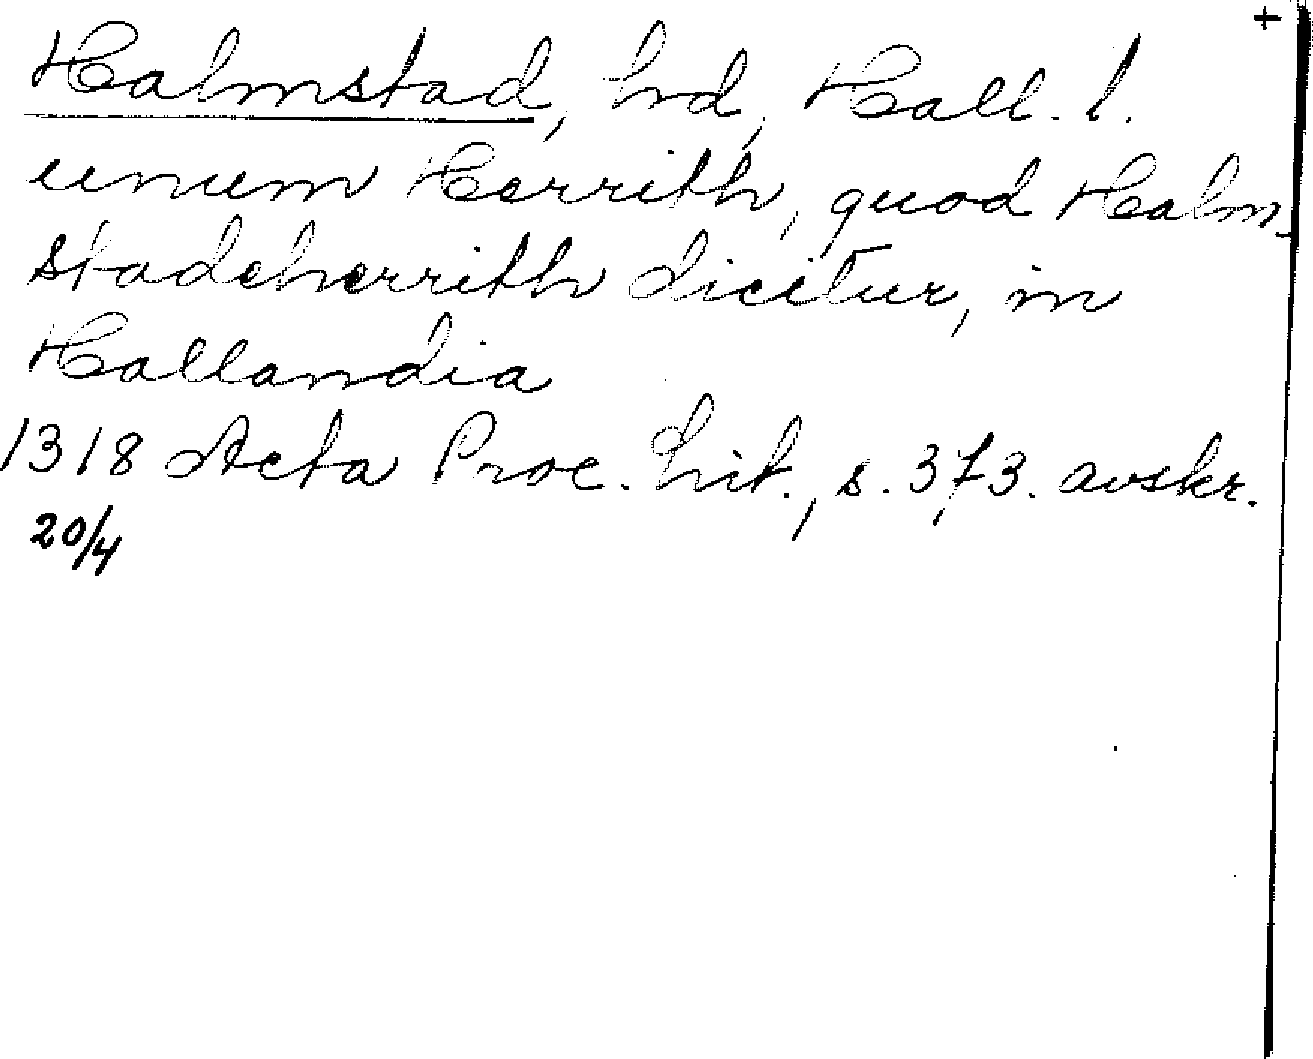 +
Halmstad, hd, Hall. l.
unum Herrith, quod Halm-
stadeherrith dicitur, in
Hallandia
1318 Acta Proc. Lit., s. 373. avskr.
20/4